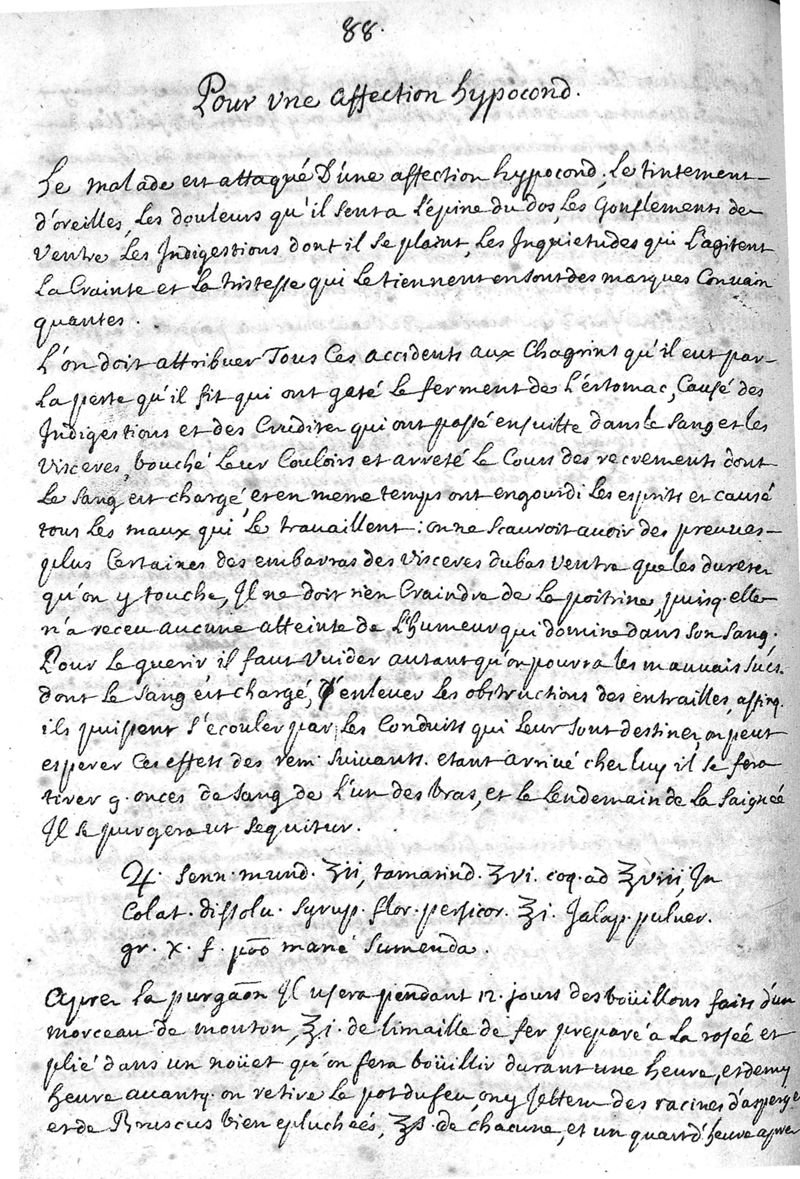 88.
Pour vne affection hypocond.
Le malade est attaqué D'une affection hypocond; Le tintement
d'oreilles, Les douleurs qu'il sent a L'épine du dos, Les Gonflements de
Ventre Les Indigestions dont il se plaint, Les Inquietudes qui L'agitent
La Crainte et La tristesse qui Le tiennent en sont des marques Convain
quantes.
L'on doit attribuer Tous Ces accidents aux Chagrins qu'il eut par
La perte qu'il fit qui ont gaté Le ferment de L'éstomac, Causé des
Indigestions et des Cruditez qui ont passé ensuitte dans le sang et les
Visceres, bouché Leur Couloirs et arreté Le Cours des recrements dont
Le sang est chargé, et en meme temps ont engourdi Les esprits et causé
tous Les maux qui Le travaillent: on ne scauroit auoir des preuues
plus Certaines des embarras des visceres du bas ventre que les duretez
qu'on y touche, Il ne doit rien Craindre de La poitrine, puisq. elle
n'a receu aucune atteinte de L'humeur qui domine dans son sang.
Pour Le guerir il faut Vuider autant qu'on pourra les mauvais sucs
dont Le sang est chargé, d'enleuer Les obstructions des entrailles, affinq.
ils puissent s'ecouler par Les Conduits qui Leur sont destinez, on peut
esperer Ces effets des rem. suivants. etant arriué chez luy il se fera
tirer 9. onces de sang de L'un des bras, et Le Lendemain de La saignée
Il se purgera ut sequitur.
♃. Senn. mund. ʒii, tamarind. ʒvi. coq. ad ℥viii, In
Colat. dissolu. Syrup. flor. persicor. ℥i. Jalap. puluer.
gr. x. f. poõ mané Sumenda.
Aprez La purgaõn Il usera pendant 12. jours des boüillons faits d'un
morceau de mouton, ℥i. de limaille de fer preparé a La rosée et
plié dans un noüet qu'on fera boüillir durant une heure, et demy
heure auant q. on retire Le pot du feu, on y Jettera des racines d'asperge
et de Bruscus bien epluchées, ℥s. de chacune, et un quart d'heure aprez